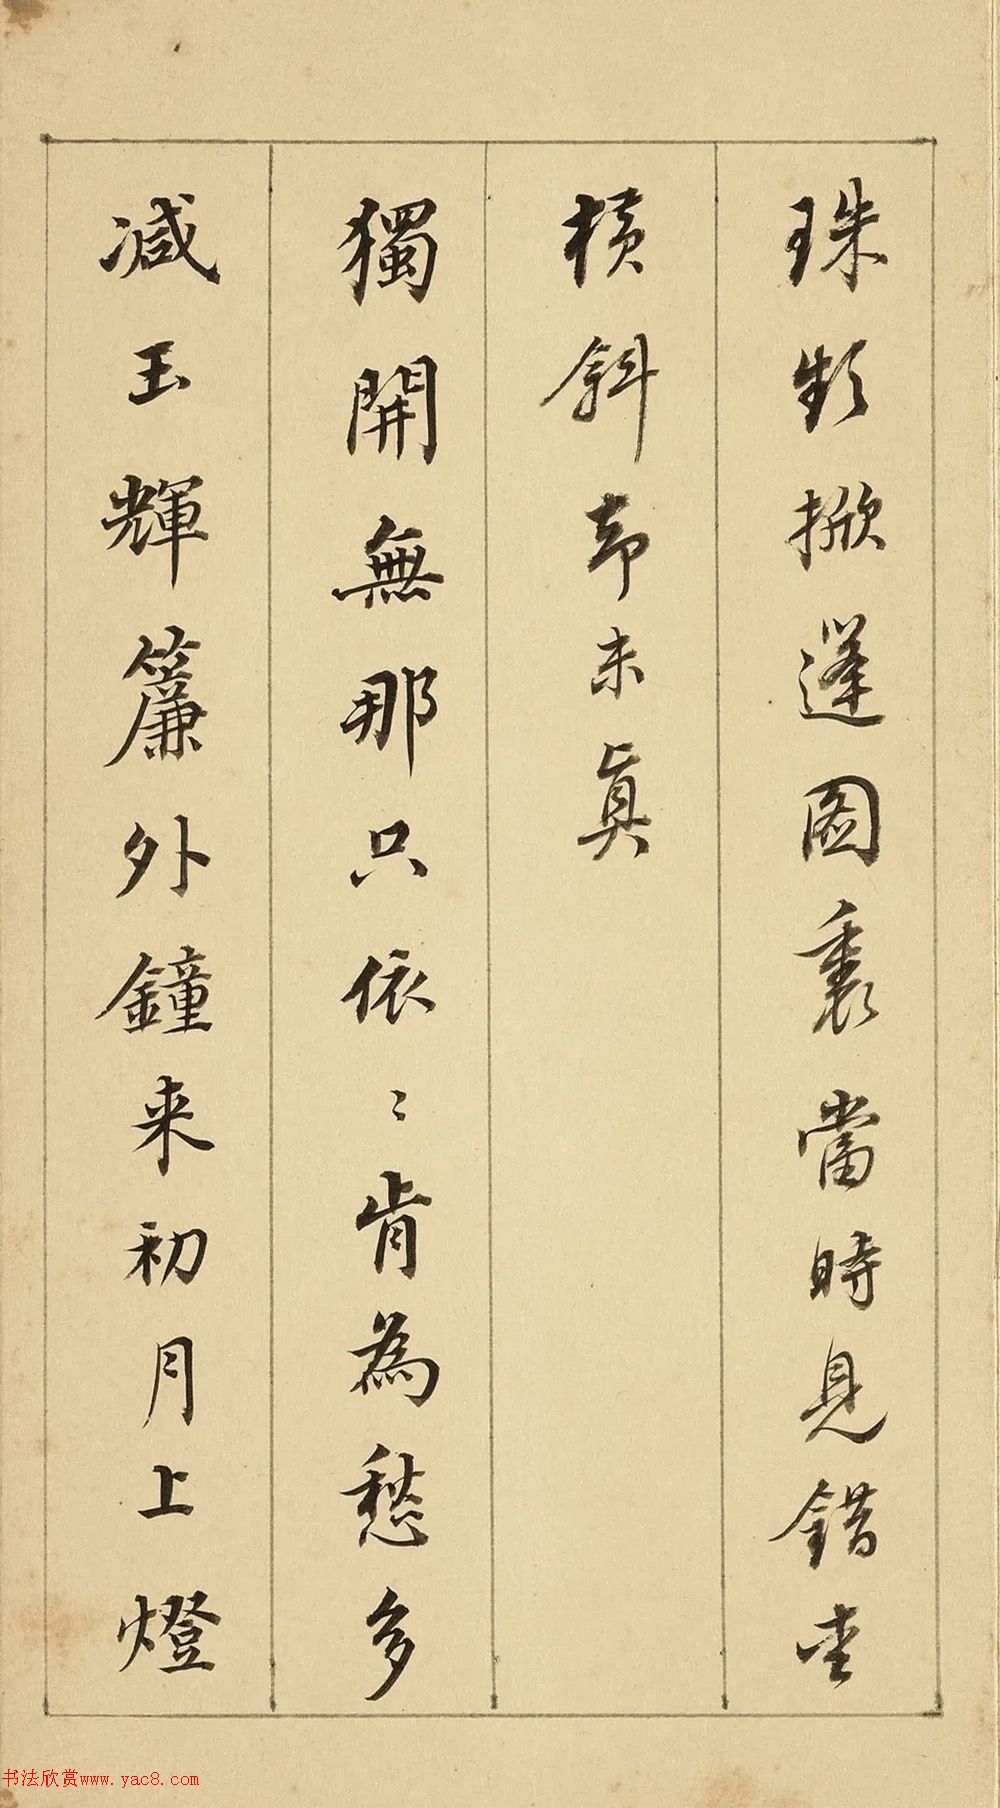 珠頻掀篷圖裏當時見錯愛
橫斜却未真
獨開無那只依〻肯為愁多
減玉輝簾外鐘来初月上燈
书法欣赏www.yac8.com